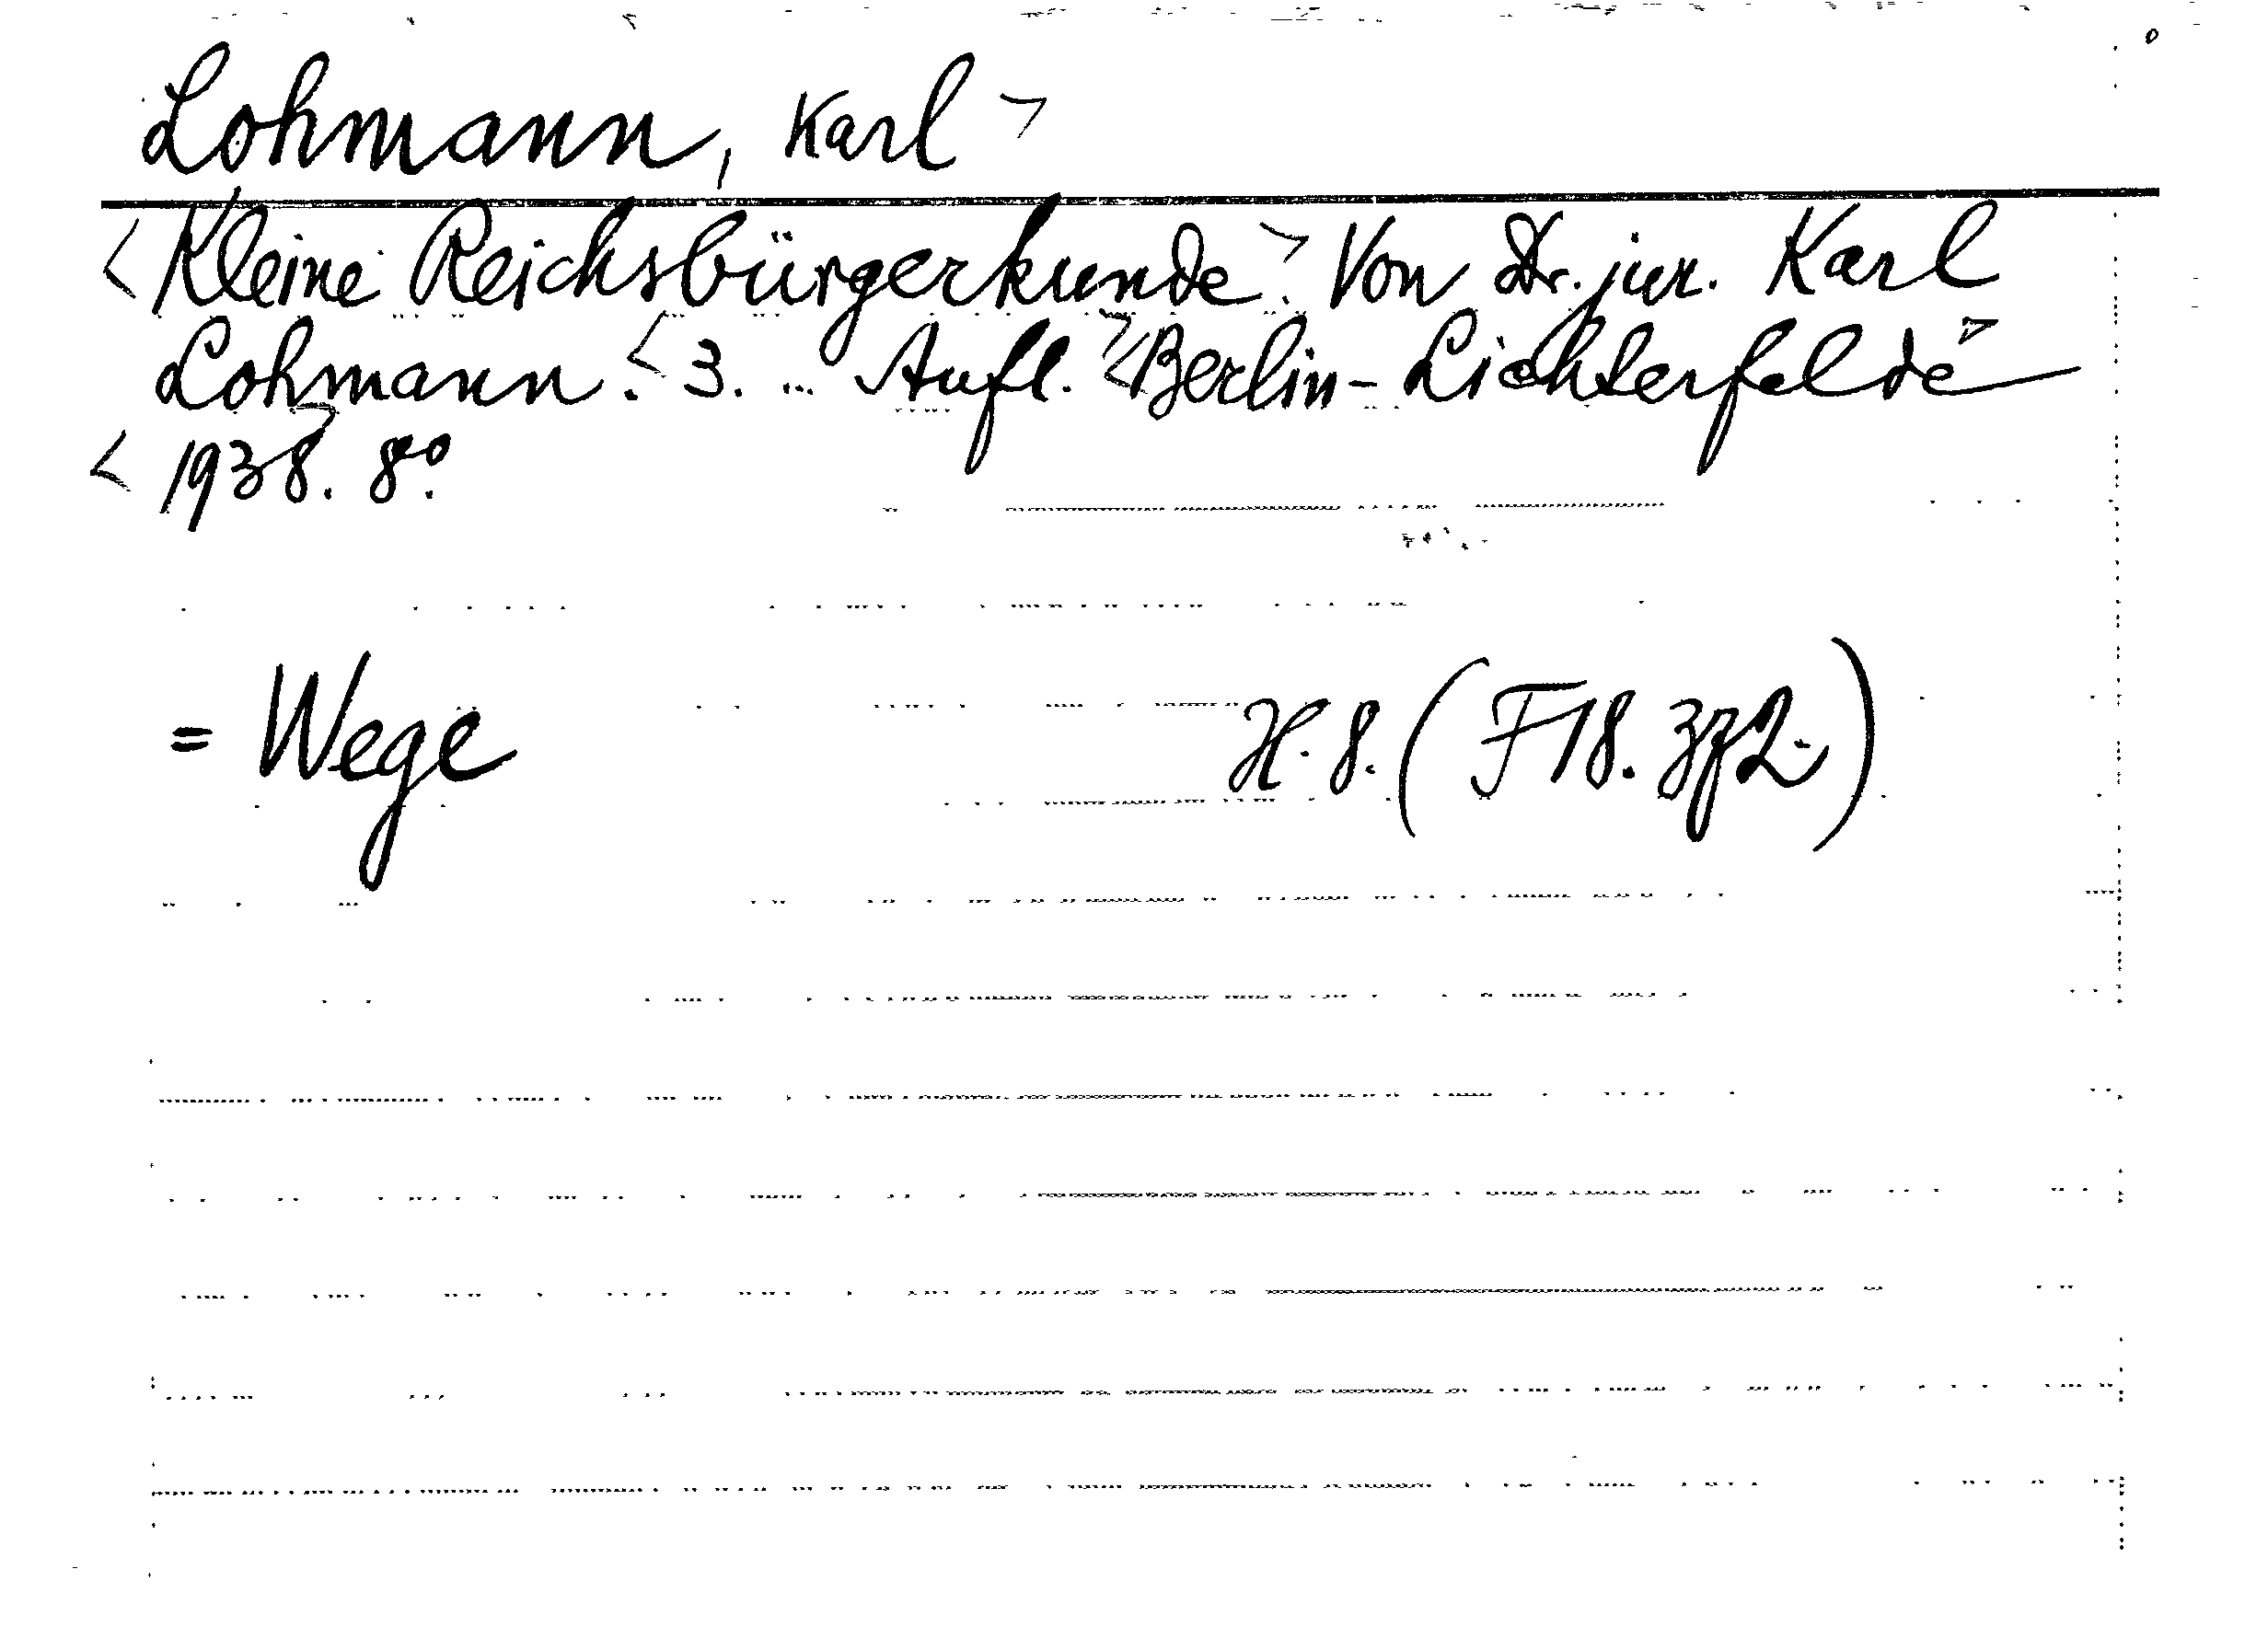 Lohmann, Karl >
< Kleine Reichsbürgerkunde. > Von Dr. jur. Karl
Lohmann. < 3. ... Aufl. > < Berlin-Lichterfelde >
< 1938. > 8º.
= Wege H. 8. (F18. 3f2.)